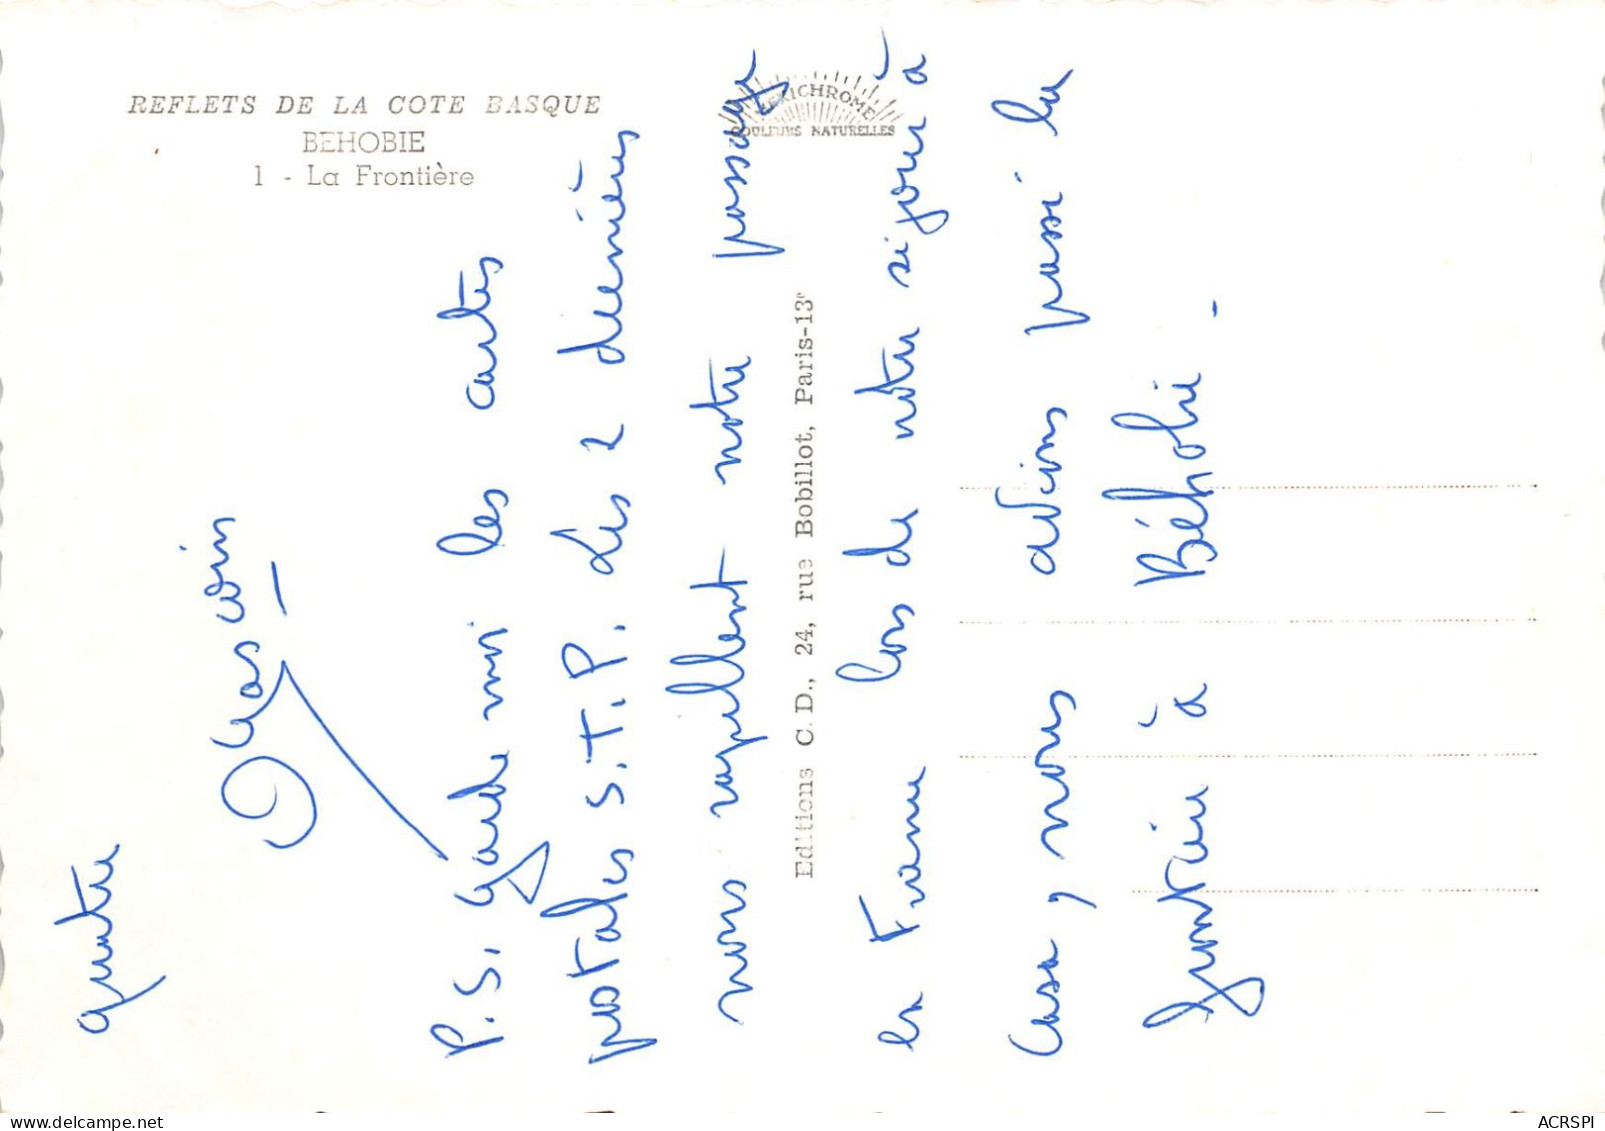 REFLETS DE LA COTE BASQUE
BEHOBIE
1 - La Frontière
MEXICHROME
COULEURS NATURELLES
Editions C. D., 24, rue Bobillot, Paris-13e
quatre
P.S. Garde moi les cartes
postales S.T.P. Les 2 dernières
nous rappellent notre passage
en France lors de notre séjour à
Casa, nous avions passé la
frontière à Béhobie -
ACRSPI